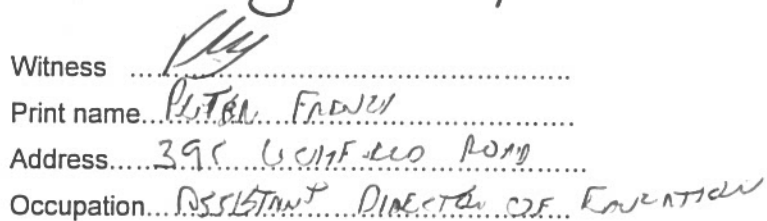 Witness
Print name... PETER FRENCH
Address..... 395 LICHFIELD ROAD
Occupation... ASSISTANT DIRECTOR OF EDUCATION